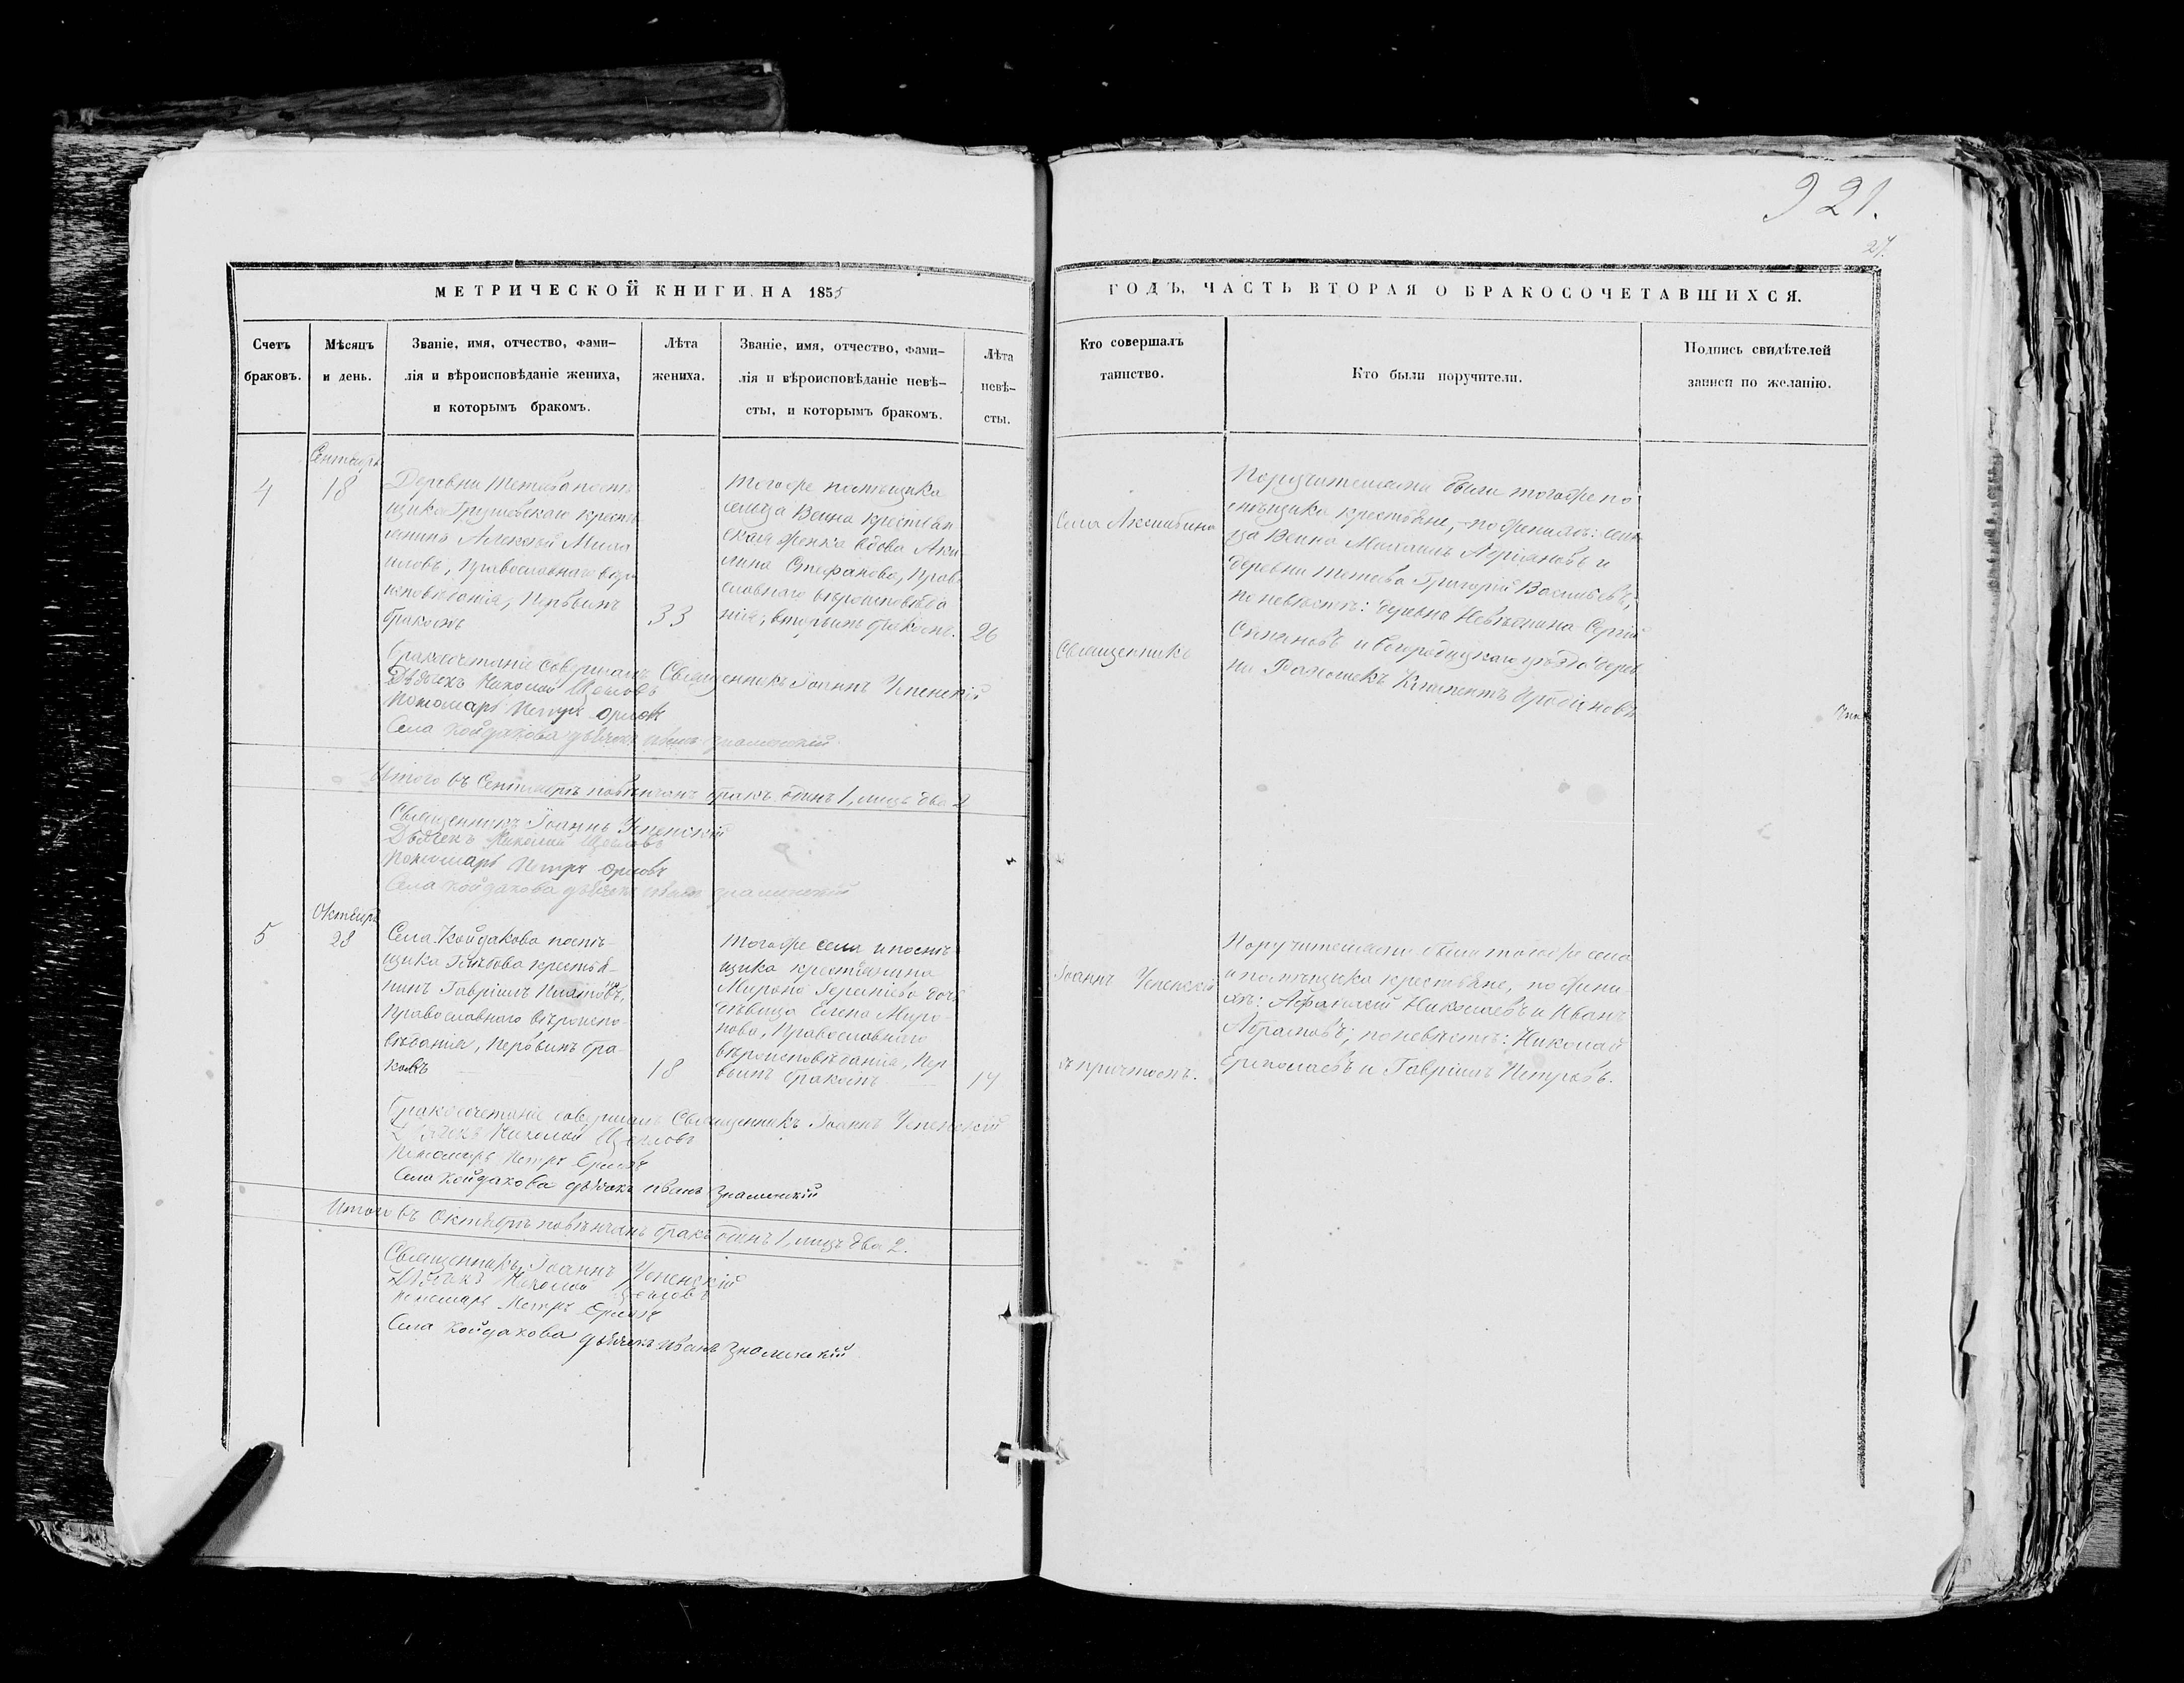 921.
27.
МЕТРИЧЕСКОЙ КНИГИ НА 1855
ГОДЪ, ЧАСТЬ ВТОРАЯ О БРАКОСОЧЕТАВШИХСЯ.
Счетъ
браковъ.
Мѣсяцъ
и день.
Званіе, имя, отчество, фами-
лія и вѣроисповѣданіе жениха,
и которымъ бракомъ.
Лѣта
жениха.
Званіе, имя, отчество, фами-
лія и вѣроисповѣданіе невѣ-
сты, и которымъ бракомъ.
Лѣта
невѣ-
сты.
Кто совершалъ
таинство.
Кто были поручители.
Подпись свидѣтелей
записи по желанію.
Сентябрь
4
18
Деревни
щика Грушевскаго кресть
янинъ Алексѣй
Православнаго вѣро
исповѣданія, первымъ
бракомъ
33
того же помѣщика
сельца Веина крестьян
ская женка вдова Аки
лина Стефанова, Прав
славнаго вѣроисповѣда
нія, вторымъ бракомъ.
26
Села
Священникъ
Поручителями были того же по
мѣщика крестьяне, по женихѣ: сель
ца Веина Михаилъ Адріановъ и
деревни Григорій Васильевъ,
по невѣстѣ: деревни Сергій
и Богородицкаго уѣзда дерев
ни Климентъ
Бракосочетаніе совершалъ Священникъ Іоаннъ Успенскій
Дьячекъ Николай Щегловъ
Пономарь Петръ Орловъ
Села Койдакова дьячекъ Иванъ Знаменскій
Итого въ Сентябрѣ повѣнчанъ бракъ одинъ 1, лицъ два 2
Священникъ Іоаннъ Успенскій
Дьячекъ Николай Щегловъ
Пономарь Петръ Орловъ
Села Койдакова дьячекъ Иванъ Знаменскій
Октябрь
5
28
Села Койдакова помѣ-
щика Глѣбова крестья-
нинъ Гавріилъ Платоновъ,
Православнаго вѣроиспо-
вѣданія, первымъ бра-
комъ
18
того же села и помѣ-
щика крестьянина
Мирона дочь
дѣвица Елена Миро-
нова, Православнаго
вѣроисповѣданія, пер
вымъ бракомъ
Іоаннъ Успенскій
съ причтомъ.
Поручителями были того же села
и помѣщика крестьяне, по жени-
хѣ: Афанасій Николаевъ и Иванъ
Абрамовъ; по невѣстѣ: Николай
Ермолаевъ и Гавріилъ Петровъ.
Бракосочетаніе совершалъ Священникъ Іоаннъ Успенскій
Дьячекъ Николай Щегловъ
Пономарь Петръ Орловъ
Села Койдакова дьячекъ Иванъ Знаменскій
Итого въ Октябрѣ повѣнчанъ бракъ одинъ 1, лицъ два 2.
Священникъ Іоаннъ Успенскій
Дьячекъ Николай Щегловъ
Пономарь Петръ Орловъ
Села Койдакова дьячекъ Иванъ Знаменскій